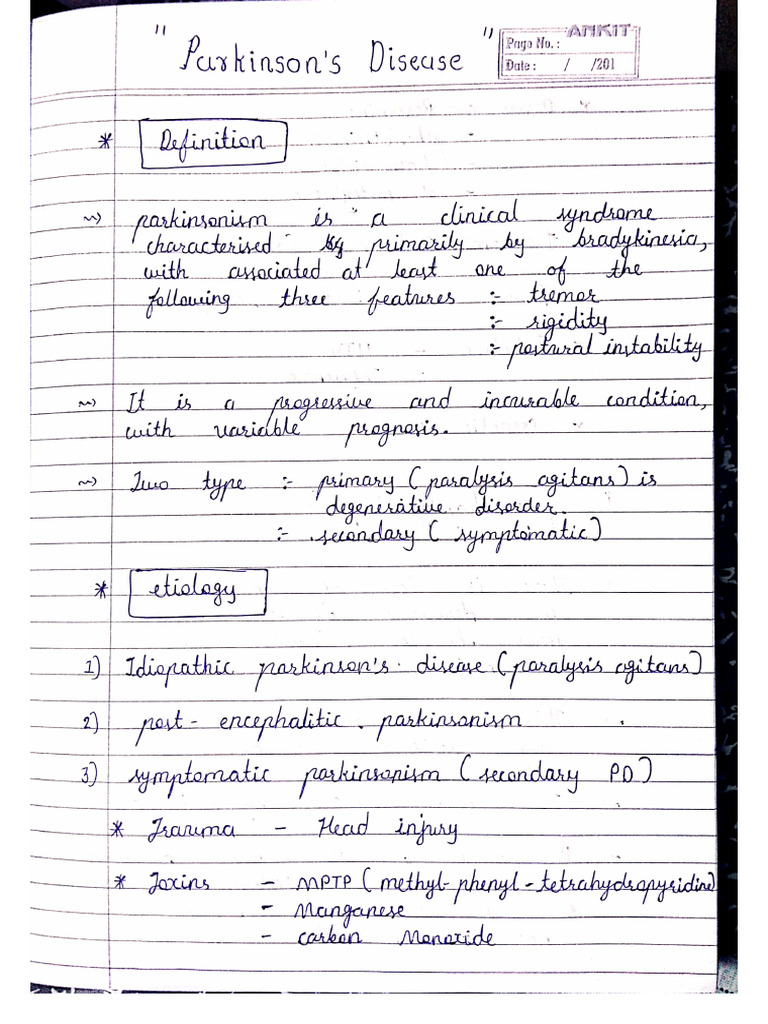 " Parkinson's Disease "
ANKIT
Page No. :
Date : / /201
* Definition
~> parkinsonism is a clinical syndrome
characterised by primarily by bradykinesia,
with associated at least one of the
following three features :- tremor
:- rigidity
:- postural instability
~> It is a progressive and incurable condition,
with variable prognosis.
~> Two type :- primary (paralysis agitans) is
degenerative disorder.
:- secondary ( symptomatic)
* etiology
1) Idiopathic parkinson's disease (paralysis agitans)
2) post - encephalitic parkinsonism
3) symptomatic parkinsonism ( secondary PD)
* Trauma - Head injury
* Toxins - MPTP ( methyl-phenyl-tetrahydropyridine)
- Manganese
- carbon Monoxide